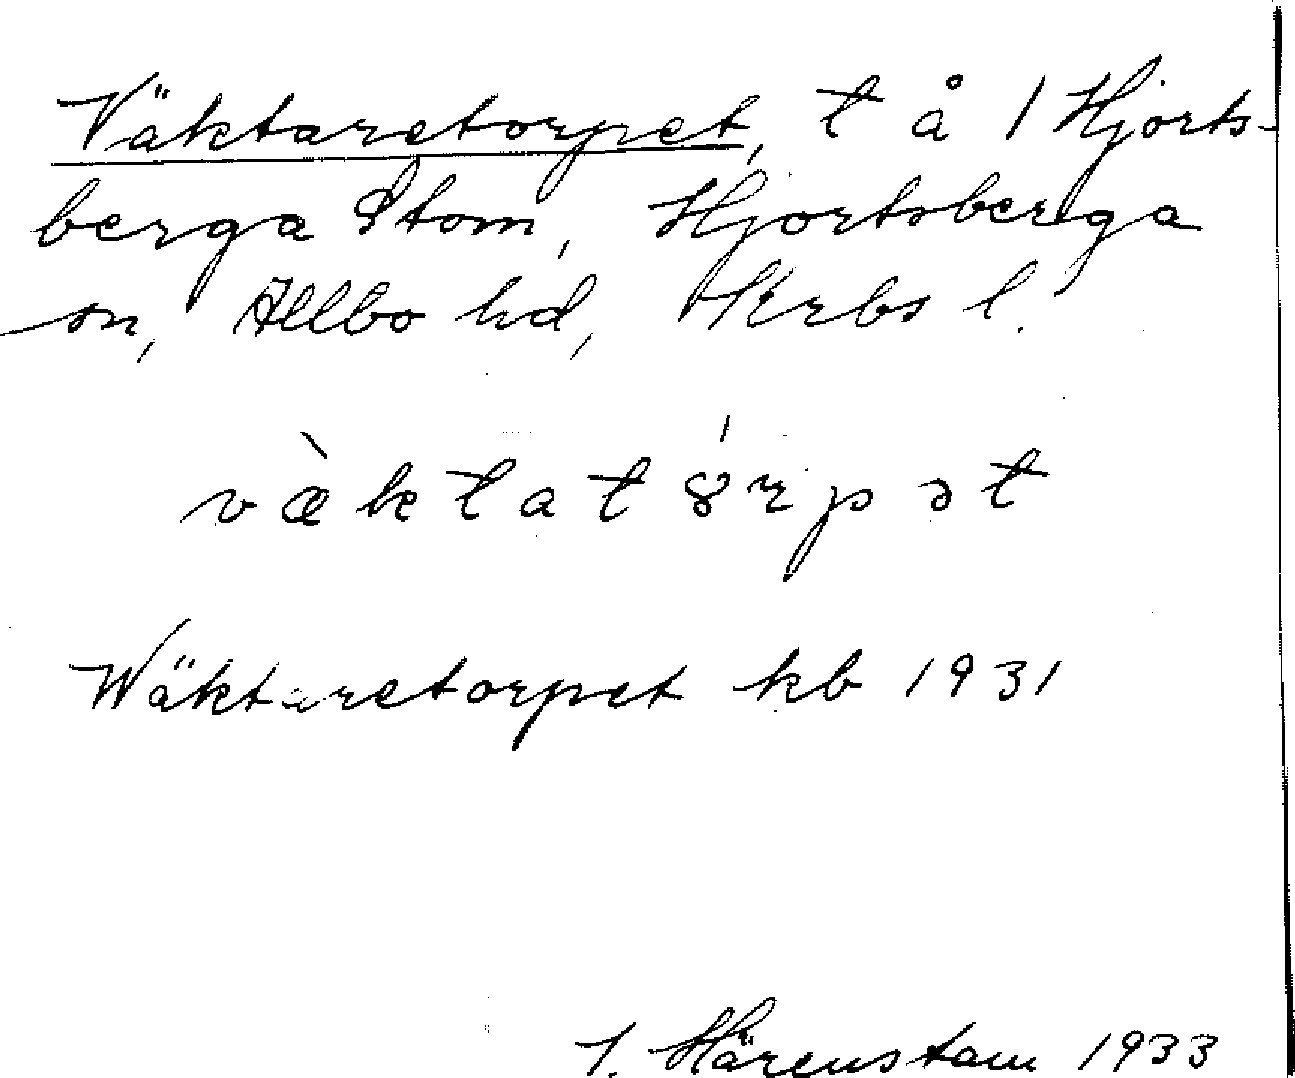 Väktaretorpet, t å 1 Hjorts-
berga Stom, Hjortsberga
sn, Allbo hd, Krbs l.
væ̀ktatȣ́rpət
Wäktaretorpet kb 1931
J. Härenstam 1933